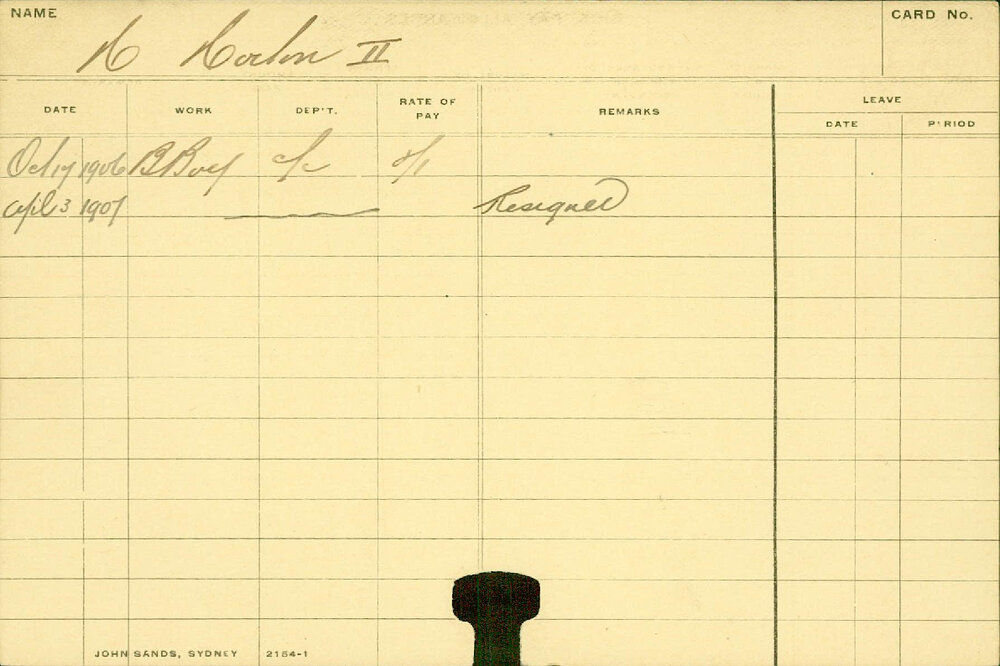 NAME
H Horton II
CARD No.
DATE WORK DEP'T. RATE OF PAY REMARKS LEAVE
DATE PERIOD
Oct 17 1906 B Boy c/c
Apil 3 1907 Resigned
JOHN SANDS, SYDNEY 2154-1